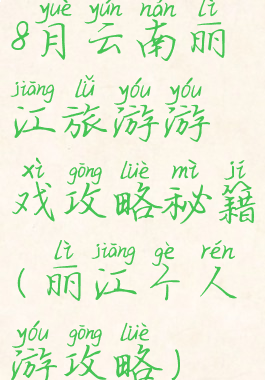 yuè yún nán lì
8月云南丽
jiāng lǚ yóu yóu
江旅游游
xì gōng lüè mì jí
戏攻略秘籍
lì jiāng gè rén
(丽江个人
yóu gōng lüè
游攻略)